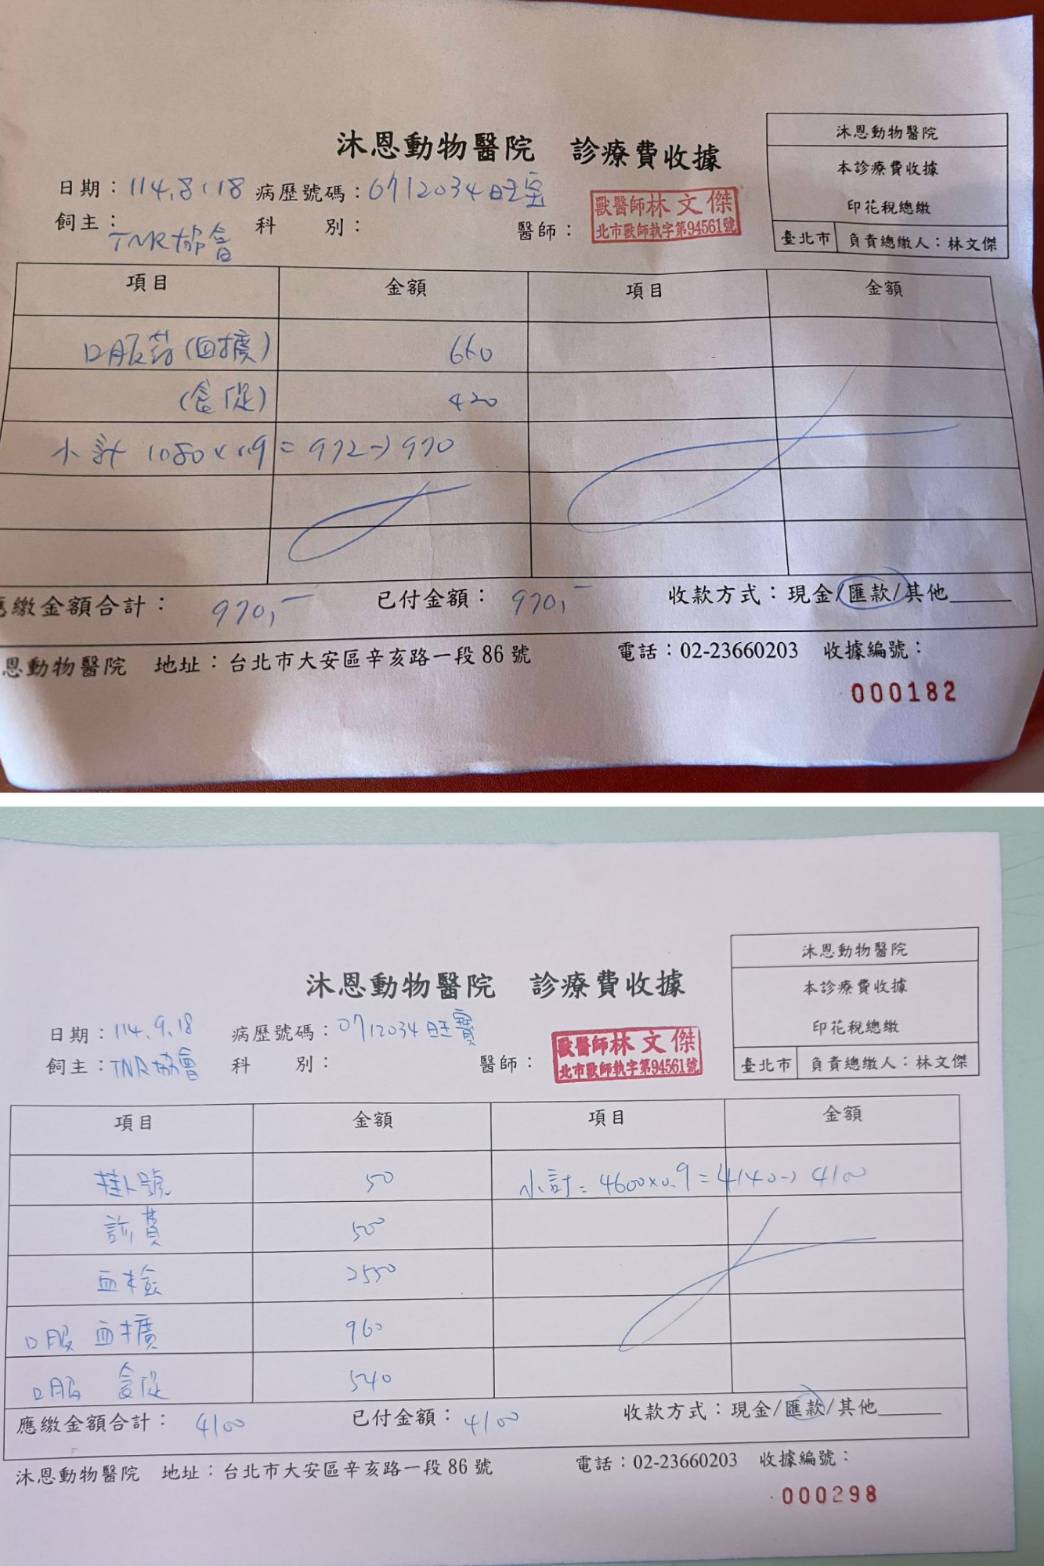 沐恩動物醫院 診療費收據
沐恩動物醫院
本診療費收據
印花稅總繳
臺北市 負責總繳人：林文傑
日期：114.8.18 病歷號碼：0712034 旺宝
飼主：TNR協會 科 別： 醫師：
獸醫師林文傑
北市獸師執字第94561號
項目 金額 項目 金額
口服葯(血擴) 660
(食促) 420
小計 1080×0.9=972→970
應繳金額合計：970,- 已付金額：970,- 收款方式：現金/匯款/其他
恩動物醫院 地址：台北市大安區辛亥路一段86號 電話：02-23660203 收據編號：
000182
沐恩動物醫院 診療費收據
沐恩動物醫院
本診療費收據
印花稅總繳
臺北市 負責總繳人：林文傑
日期：114.9.18 病歷號碼：0712034 旺寶
飼主：TNR協會 科 別： 醫師：
獸醫師林文傑
北市獸師執字第94561號
項目 金額 項目 金額
掛號 50 小計=4600×0.9=4140→4100
診費 500
血檢 2550
口服 血擴 960
口服 食促 540
應繳金額合計：4100 已付金額：4100 收款方式：現金/匯款/其他
沐恩動物醫院 地址：台北市大安區辛亥路一段86號 電話：02-23660203 收據編號：
000298